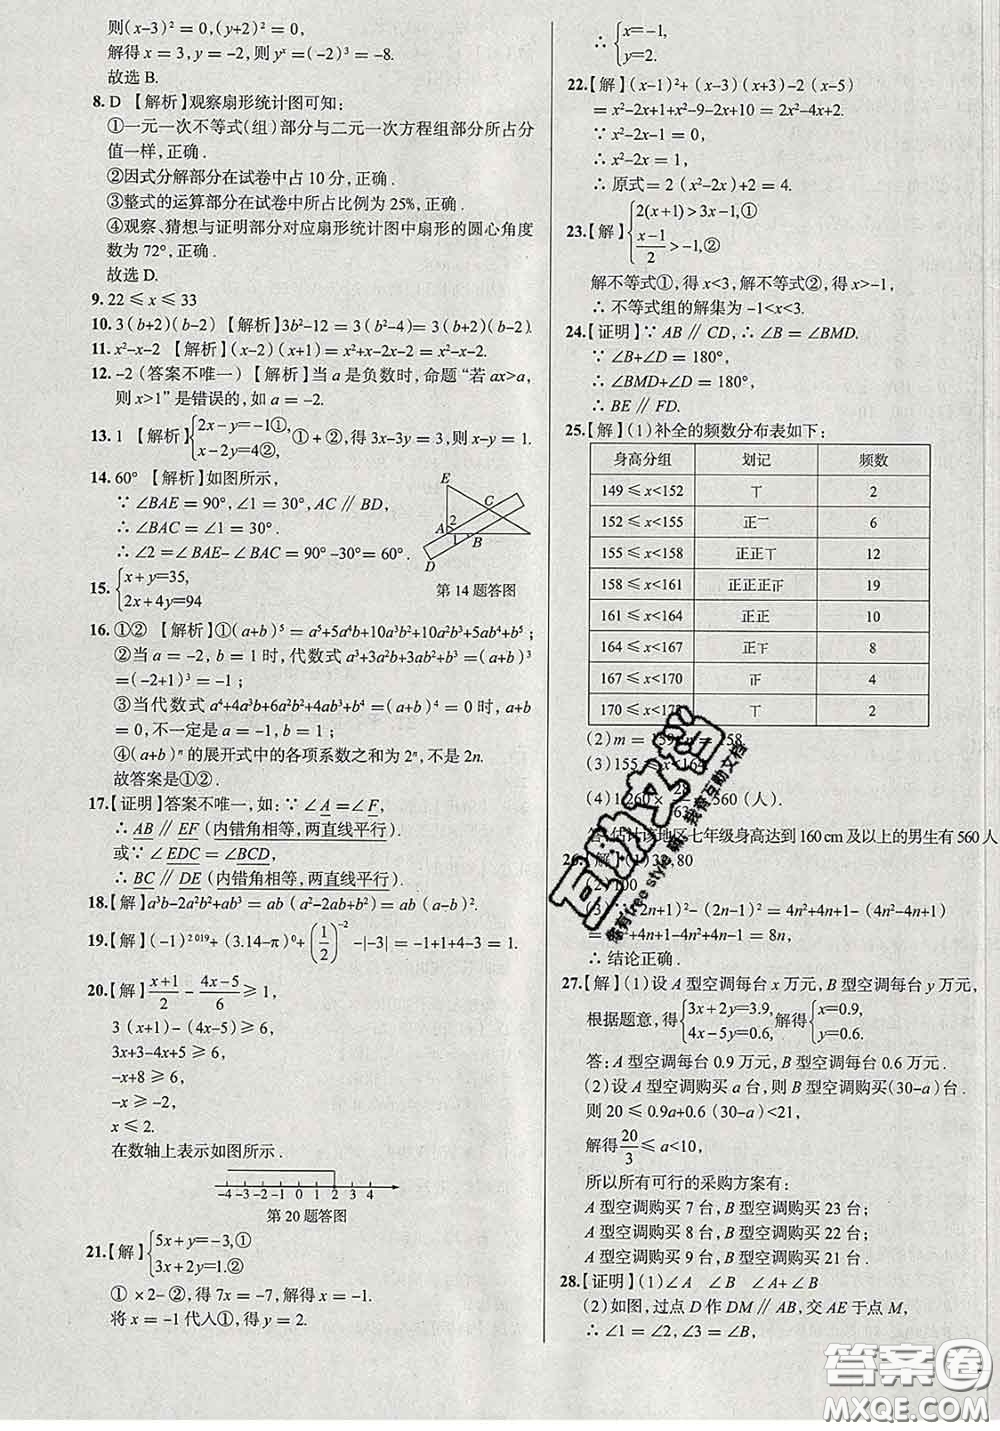 则(x-3)²=0,(y+2)²=0,
解得x=3,y=-2,则yˣ=(-2)³=-8.
故选B.
8. D 【解析】观察扇形统计图可知：
①一元一次不等式(组)部分与二元一次方程组部分所占分
值一样，正确.
②因式分解部分在试卷中占10分，正确.
③整式的运算部分在试卷中所占比例为25%，正确.
④观察、猜想与证明部分对应扇形统计图中扇形的圆心角度
数为72°，正确.
故选D.
9. 22≤x≤33
10. 3(b+2)(b-2) 【解析】3b²-12=3(b²-4)=3(b+2)(b-2).
11. x²-x-2 【解析】(x-2)(x+1)=x²+x-2x-2=x²-x-2.
12. -2(答案不唯一)【解析】当a是负数时，命题“若ax>a，
则x>1”是错误的，如a=-2.
13. 1 【解析】{2x-y=-1①, x-2y=4②, ①+②，得3x-3y=3，则x-y=1.
14. 60° 【解析】如图所示，
∵∠BAE=90°,∠1=30°,AC∥BD,
∴∠BAC=∠1=30°.
∴∠2=∠BAE-∠BAC=90°-30°=60°.
E
C
A
2
1
B
D
第14题答图
15. {x+y=35, 2x+4y=94
16. ①② 【解析】①(a+b)⁵=a⁵+5a⁴b+10a³b²+10a²b³+5ab⁴+b⁵；
②当a=-2,b=1时，代数式a³+3a²b+3ab²+b³=(a+b)³
=(-2+1)³=-1；
③当代数式a⁴+4a³b+6a²b²+4ab³+b⁴=(a+b)⁴=0时，a+b
=0，不一定是a=-1,b=1；
④(a+b)ⁿ的展开式中的各项系数之和为2ⁿ，不是2n.
故答案是①②.
17.【证明】答案不唯一，如：∵∠A=∠F,
∴AB∥EF(内错角相等，两直线平行).
或∵∠EDC=∠BCD,
∴BC∥DE(内错角相等，两直线平行).
18.【解】a³b-2a²b²+ab³=ab(a²-2ab+b²)=ab(a-b)².
19.【解】(-1)²⁰¹⁹+(3.14-π)⁰+(1/2)⁻²-|-3|=-1+1+4-3=1.
20.【解】(x+1)/2-(4x-5)/6≥1,
3(x+1)-(4x-5)≥6,
3x+3-4x+5≥6,
-x+8≥6,
-x≥-2,
x≤2.
在数轴上表示如图所示.
-4 -3 -2 -1 0 1 2 3 4
第20题答图
21.【解】{5x+y=-3,① 3x+2y=1.②
①×2-②，得7x=-7，解得x=-1.
将x=-1代入①，得y=2.
∴{x=-1, y=2.
22.【解】(x-1)²+(x-3)(x+3)-2(x-5)
=x²-2x+1+x²-9-2x+10=2x²-4x+2.
∵x²-2x-1=0,
∴x²-2x=1.
∴原式=2(x²-2x)+2=4.
23.【解】{2(x+1)>3x-1,① (x-1)/2>-1,②
解不等式①，得x<3，解不等式②，得x>-1,
∴不等式组的解集为-1<x<3.
24.【证明】∵AB∥CD,∴∠B=∠BMD.
∵∠B+∠D=180°,
∴∠BMD+∠D=180°.
∴BE∥FD.
25.【解】(1)补全的频数分布表如下：
身高分组 划记 频数
149≤x<152 丅 2
152≤x<155 正一 6
155≤x<158 正正丅 12
158≤x<161 正正正正 19
161≤x<164 正正 10
164≤x<167 正 8
167≤x<170 4
170≤x<173 丅 2
(2)m=159,n=158
(3)155≤x<164.
(4)1260×28/63=560(人).
答：估计该地区七年级身高达到160cm及以上的男生有560人
26.【解】(1)32,80
(2)100
(3)∵(2n+1)²-(2n-1)²=4n²+4n+1-(4n²-4n+1)
=4n²+4n+1-4n²+4n-1=8n,
∴结论正确.
27.【解】(1)设A型空调每台x万元，B型空调每台y万元，
根据题意，得{3x+2y=3.9, 4x-5y=0.6. 解得{x=0.9, y=0.6.
答：A型空调每台0.9万元，B型空调每台0.6万元.
(2)设A型空调购买a台，则B型空调购买(30-a)台.
则20≤0.9a+0.6(30-a)<21,
解得20/3≤a<10,
所以所有可行的采购方案有：
A型空调购买7台，B型空调购买23台；
A型空调购买8台，B型空调购买22台；
A型空调购买9台，B型空调购买21台.
28.【证明】(1)∠A ∠B ∠A+∠B
(2)如图，过点D作DM∥AB，交AE于点M,
∴∠1=∠2,∠3=∠B,
互助文档
答案卷
MXQE.COM